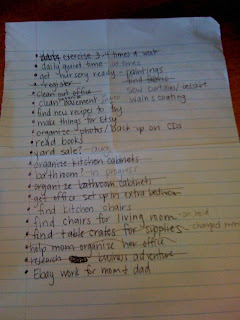 • daily exercise 3-4 times a week
• daily quiet time
• get nursery ready - paintings
• register
find fabric
• clean out office
sew curtain/
• clean basement
wainscoating
• find new recipes to try
• make things for Etsy
• organize photos/back up on CDs
• read books
• yard sale?
• organize kitchen cabinets
• bathroom? - in progress
• organize bathroom cabinets
• get office set up in extra bedroom
• find kitchen chairs
• find chairs for living room - on hold
• find table crates for supplies - changed mind
• help mom organize her office
• research business adventure
• Ebay work for mom + dad